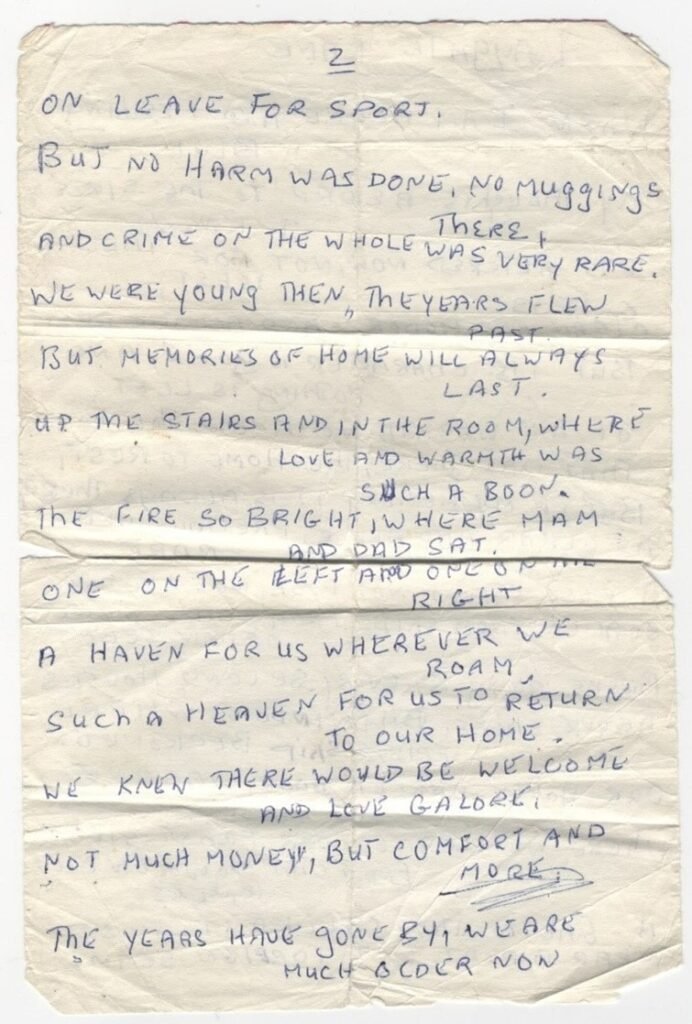 2
ON LEAVE FOR SPORT.
BUT NO HARM WAS DONE, NO MUGGINGS
THERE,
AND CRIME ON THE WHOLE WAS VERY RARE.
WE WERE YOUNG THEN, THE YEARS FLEW
PAST.
BUT MEMORIES OF HOME WILL ALWAYS
LAST.
UP THE STAIRS AND IN THE ROOM, WHERE
LOVE AND WARMTH WAS
SUCH A BOON.
THE FIRE SO BRIGHT, WHERE MAM
AND DAD SAT.
ONE ON THE LEFT AND ONE ON THE
RIGHT
A HAVEN FOR US WHEREVER WE
ROAM,
SUCH A HEAVEN FOR US TO RETURN
TO OUR HOME.
WE KNEW THERE WOULD BE WELCOME
AND LOVE GALORE,
NOT MUCH MONEY, BUT COMFORT AND
MORE.
THE YEARS HAVE GONE BY, WE ARE
MUCH OLDER NOW